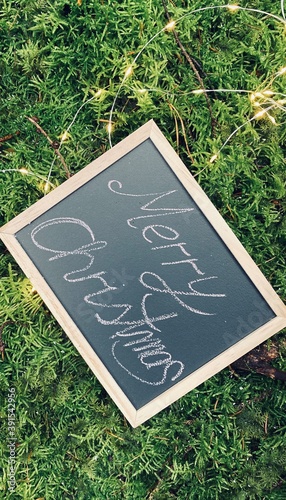 Merry
Christmas
Adobe Stock | #391542956